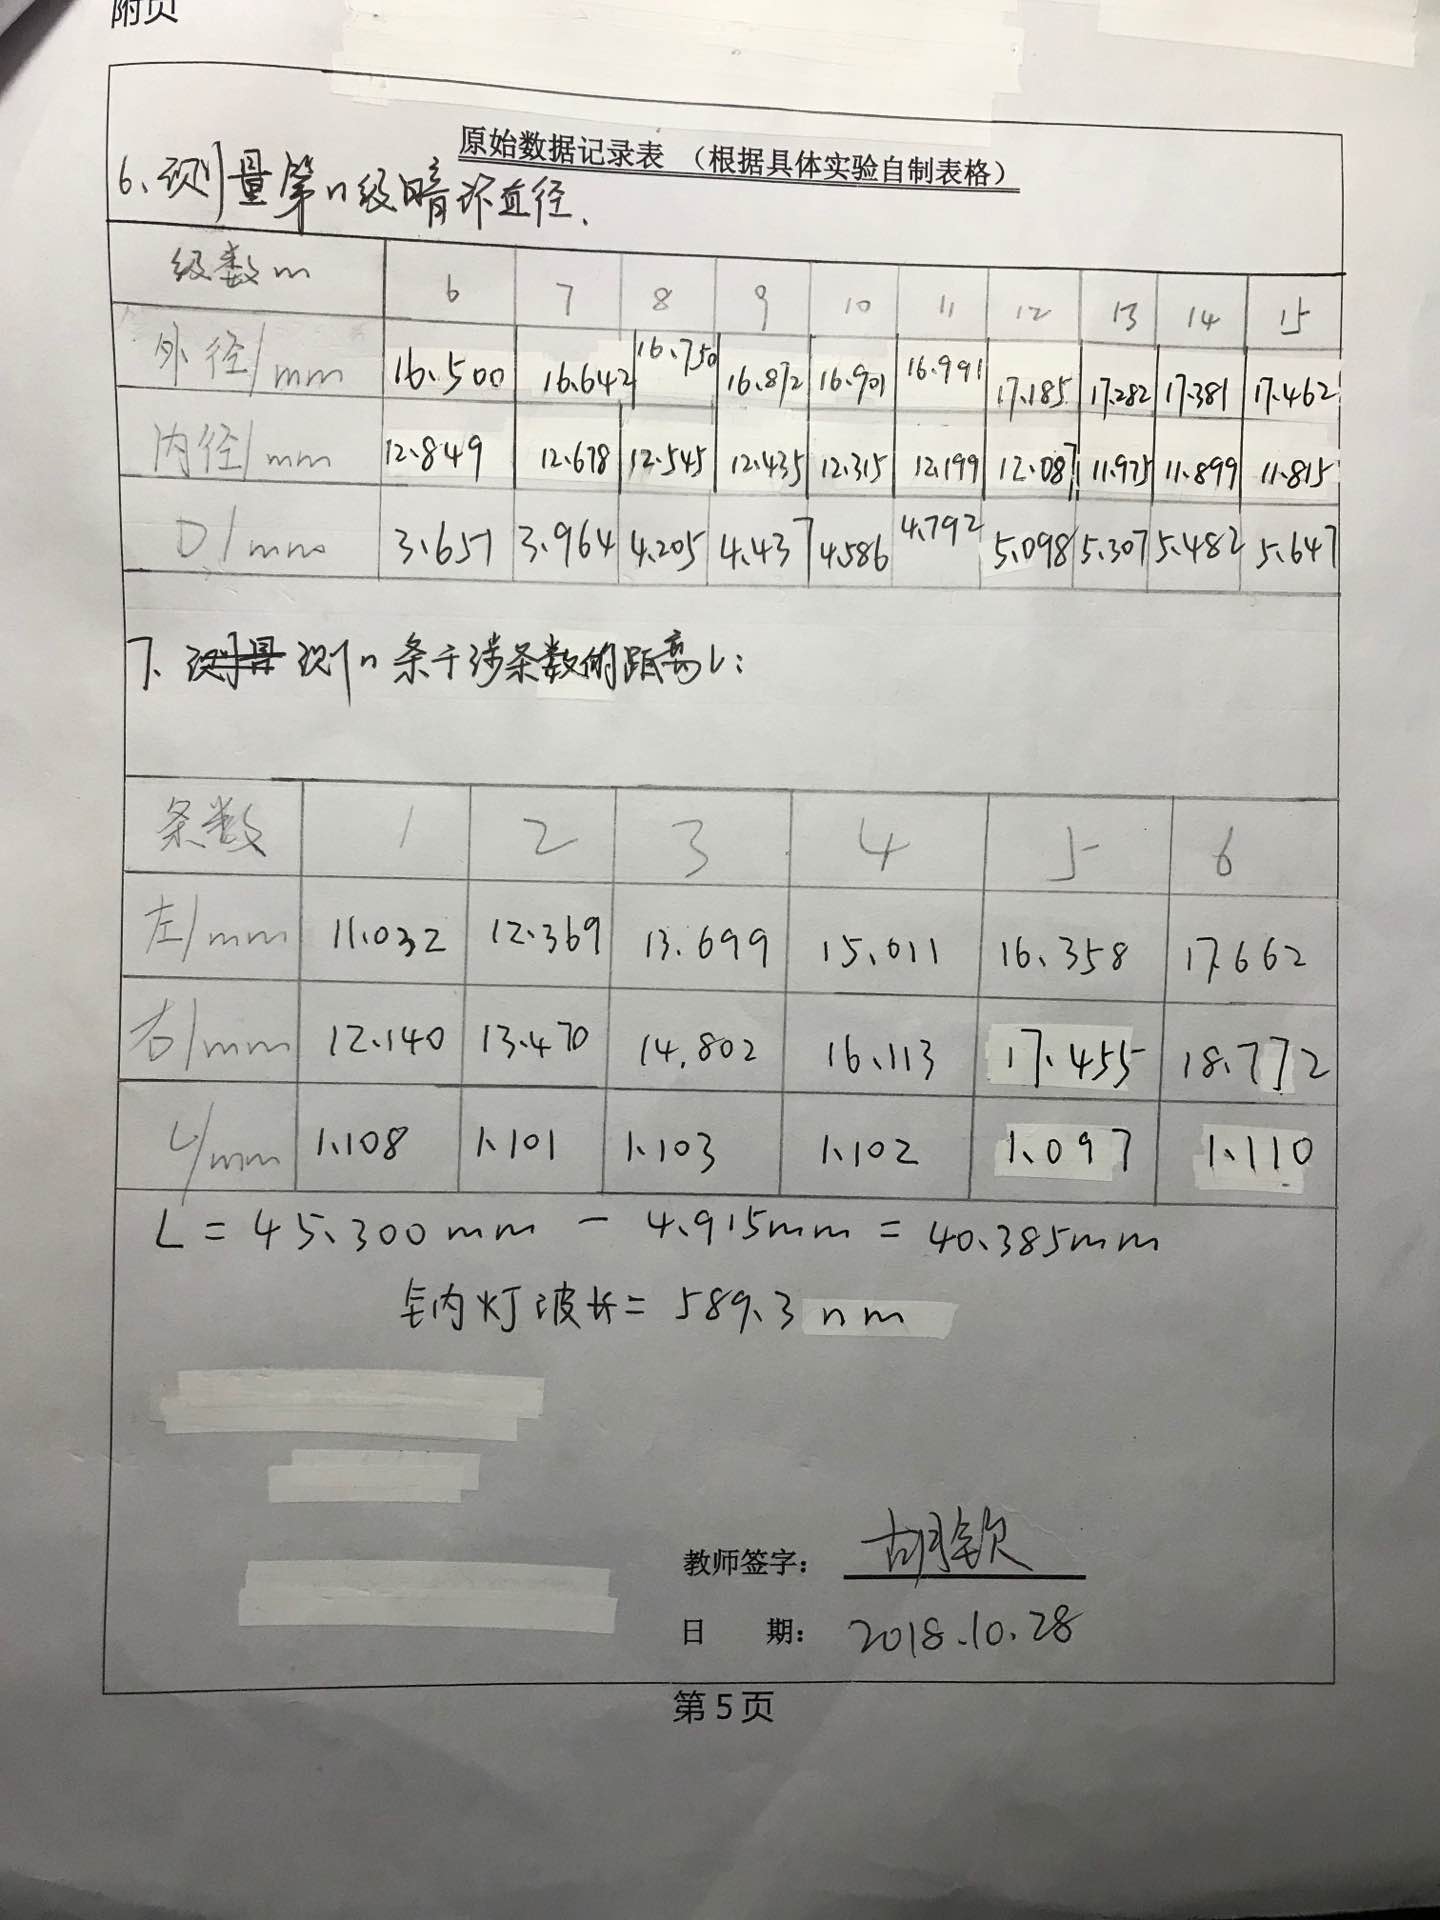 附页
原始数据记录表 （根据具体实验自制表格）
6、测量第n级暗环直径.
级数m 6 7 8 9 10 11 12 13 14 15
外径/mm 16.500 16.642 16.750 16.872 16.901 16.991 17.185 17.282 17.381 17.462
内径/mm 12.849 12.678 12.545 12.435 12.315 12.199 12.087 11.975 11.899 11.815
D/mm 3.651 3.964 4.205 4.437 4.586 4.792 5.098 5.307 5.482 5.647
7、测量 测n条干涉条数的距离L：
条数 1 2 3 4 5 6
左/mm 11.032 12.369 13.699 15.011 16.358 17.662
右/mm 12.140 13.470 14.802 16.113 17.455 18.772
L/mm 1.108 1.101 1.103 1.102 1.097 1.110
L = 45.300mm - 4.915mm = 40.385mm
钠灯波长= 589.3nm
教师签字： 胡钦
日 期： 2018.10.28
第 5 页